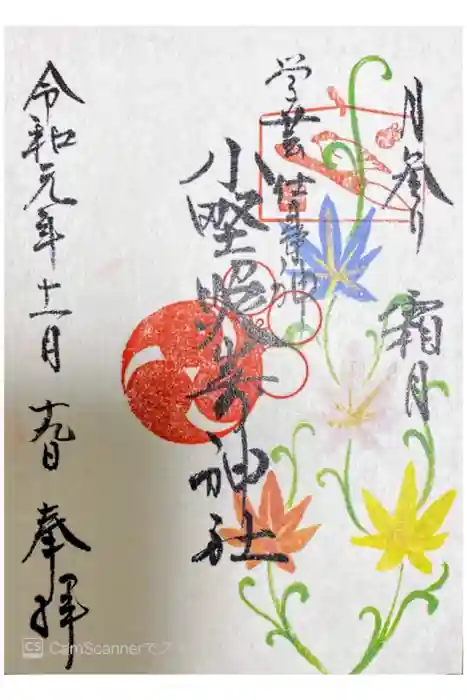 月参り
霜月
学芸 仕事の神
小野照崎神社
令和元年十一月 十九日 奉拝
CS CamScannerでス